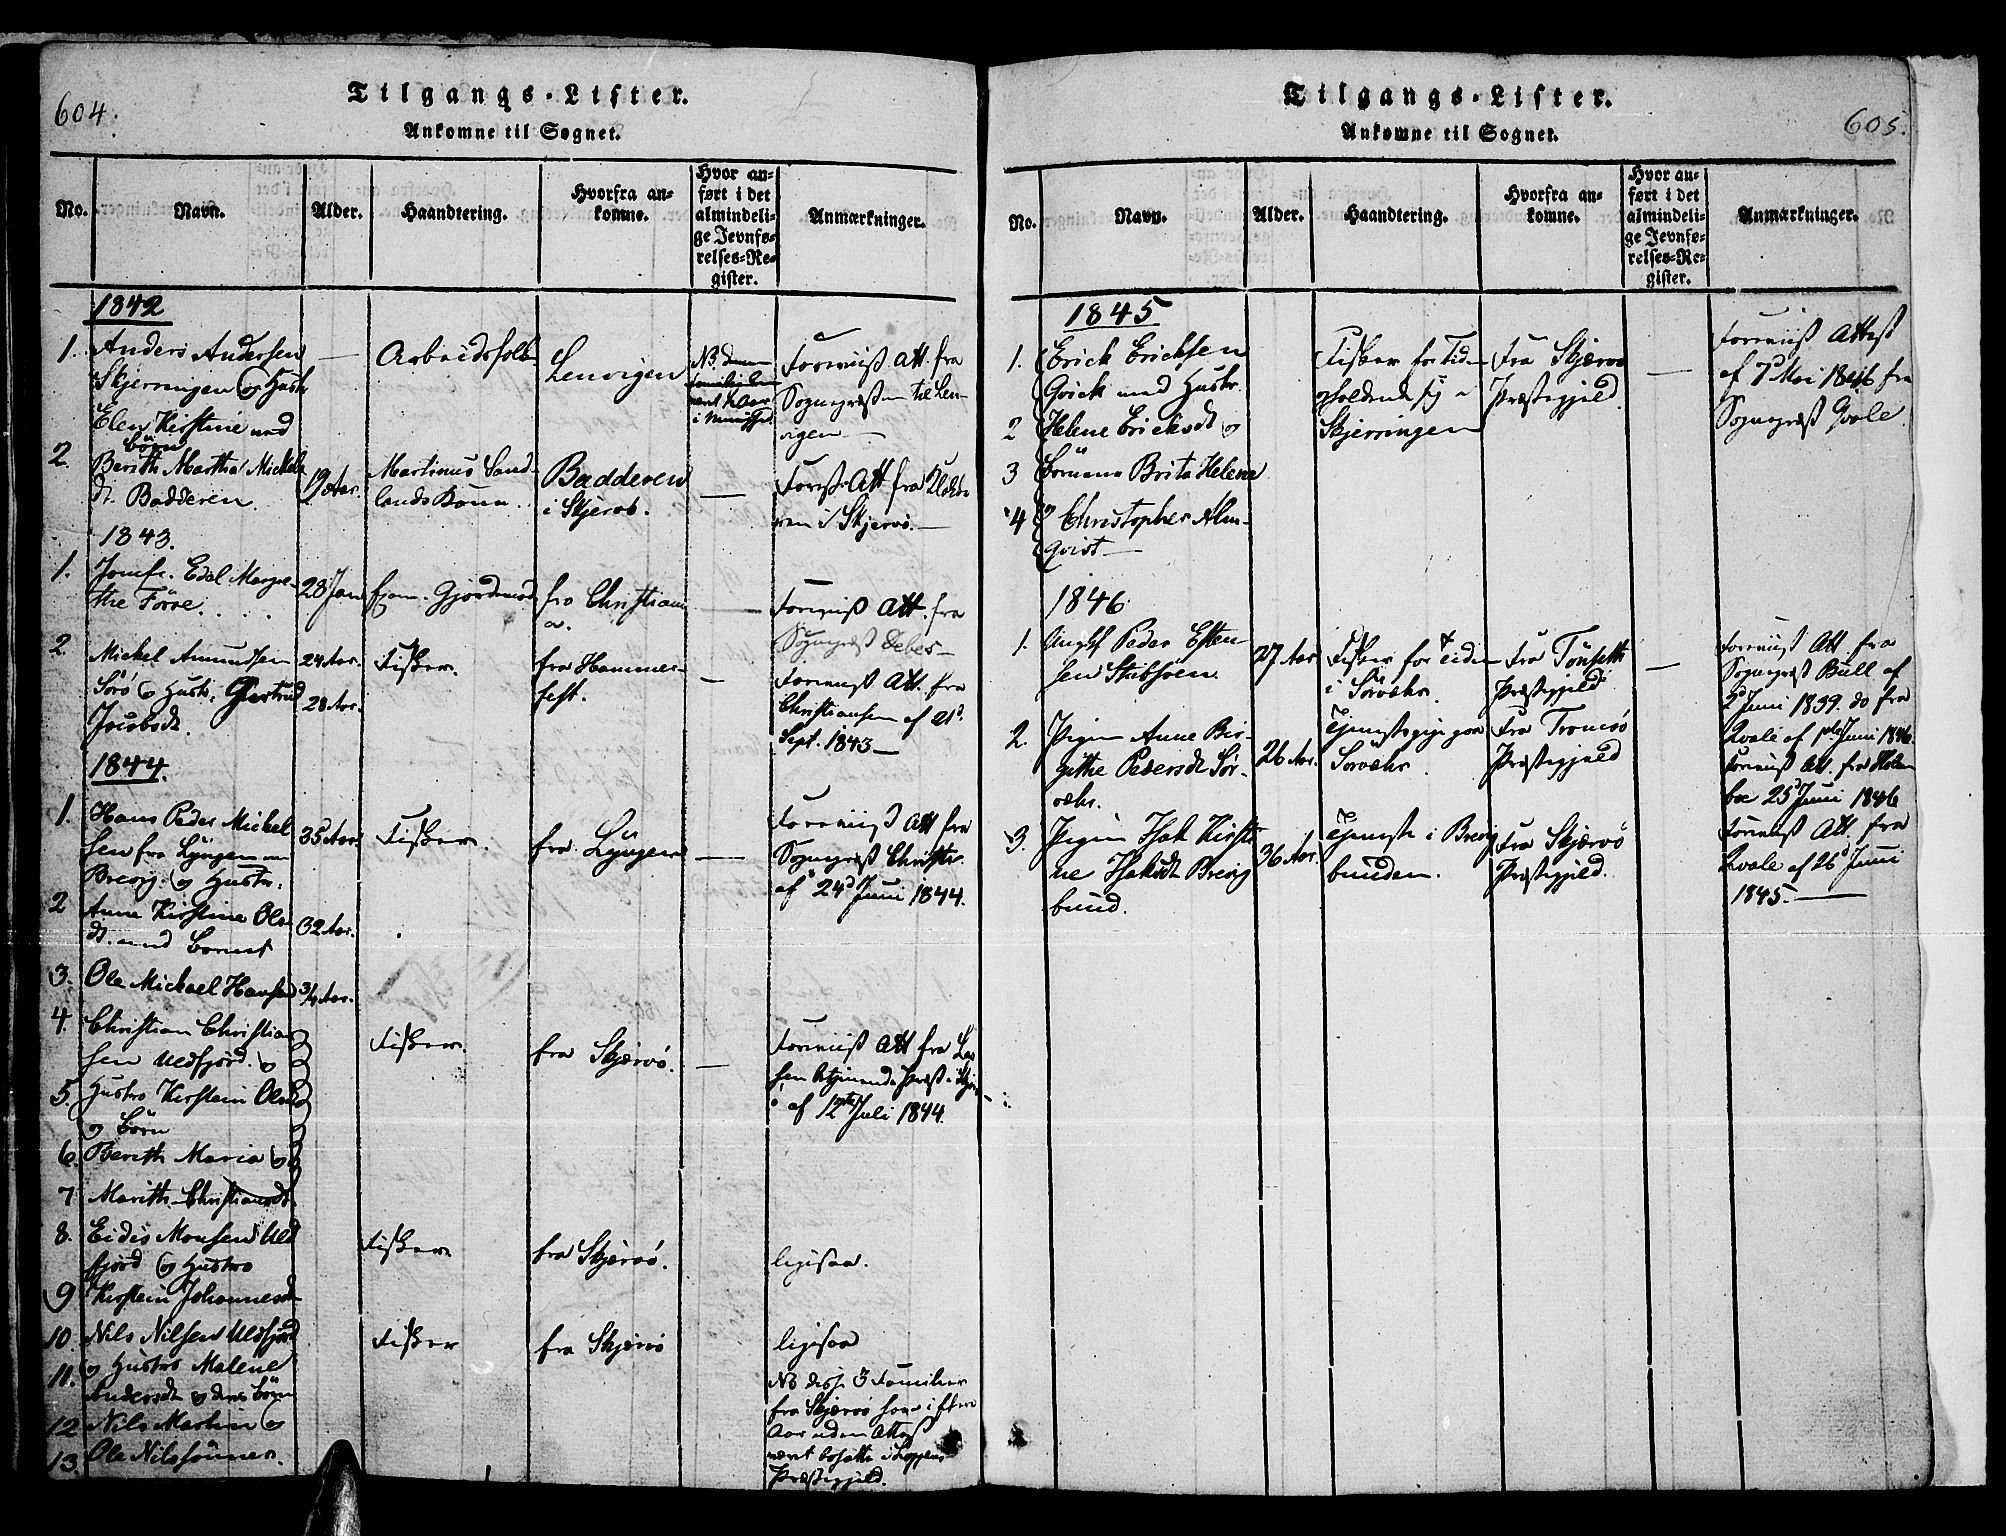 604.
Tilgangs-Lister.
Ankomne til Sognet.
No.
Navn.
Alder.
Haandtering.
Hvorfra an-
komne.
Hvor an-
ført i det
almindeli-
ge Jevnfø-
relses-Re-
gister.
Anmærkninger.
1842
1. Anders Andersen
Skjerringen og Hustr.
Elen Kirstine med
börn
— Arbeidsfolk
Lenvigen
i
Foreviist Att. fra
Sognepræsten til Len-
vigen —
2. Berith Martha Mickels
dt. Badderen.
19 Aar.
Martinus Sand-
lands Kone.
Badderen
i Skjervö.
—
Forevist Att fra
i Skjervö. —
1843.
1. Jomfr. Edel Margre-
the
28
fra Christiani
a.
—
Foreviist Att. fra
Sognepræst
2. Mickel Amundsen
Sörö og Hustr. Gjertrud
Jacobsdt.
24 Aar.
28 Aar.
Fisker.
fra Hammer-
fest.
—
Foreviist Att. fra
Christiansen af 21d
Sept. 1843 —
1844.
1. Hans Peder Mickel
sen fra Lyngen
og Hustr.
35 Aar.
Fisker.
fra Lyngen
—
Foreviist Att fra
Sognepræst
af 24d Juni 1844.
2 Anne Kirstine Ols-
dt. med Barnet
32 Aar.
3. Ole Michael Hansen
3/4 Aar.
4. Christian Christian
sen Uldfjord. og
Fisker.
fra Skjervö.
—
Foreviist Att fra
af 12te Juli 1844.
5. Hustro Kirsten Olsd
og börn
6. Berith Maria og
7 Marith Christiansdt.
8. Eidis Monsen Uld
fjord og Hustro
Fisker
fra Skjervö.
ligesaa.
9 Kirsten Johannesd
10. Nils Nilsen Uldfjord
Fisker
fra Skjervö
ligesaa
11. og Hustro Malene
Andersdt og deres börn
12 Nils Martin og
13. Ole Nilssönner.
NB disse 3 Familier
fra Skjervö have i flere
Aar uden Attest
været bosatte i Loppens
Præstegjeld.
605.
Tilgangs-Lister.
Ankomne til Sognet.
No.
Navn.
Alder.
Haandtering.
Hvorfra an-
komne.
Hvor an-
ført i det
almindeli-
ge Jevnfø-
relses-Re-
gister.
Anmærkninger.
1845
1. Erick Ericksen
Qvick med Hustr.
Fisker for Tiden
opholdende sig i
Skjerringen
Fra Skjervö
Præstegjeld.
—
Foreviist Attest
af 7d Mai 1846 fra
Sognepræst Qvale
2 Helene Ericksdt og
3 Börnene Brita Helene
4 og Christopher Alm-
qvist —
1846
1. Ungkl Peder Esten-
sen
27 Aar
Fisker for tiden
i Sørvær.
Fra Tönseth
Præstegjeld
—
Foreviist Att fra
Sognepræst Bull af
2d Juni 1839. do fra
Kvale af 1ste Juni 1846
2. Pigen Anne Bir-
githe Pedersdt Sør-
vær.
26 Aar.
Tjenestepige paa
Sørvær.
Fra Tromsö
Præstegjeld
Foreviist Att. fra Holm
boe 25d Juni 1846
3. Pigen Kirsti-
ne Brevig
bund.
36 Aar.
Tjeneste i Brevig
bunden.
Fra Skjervö
Præstegjeld.
Foreviist Att. fra
Kvale af 26d Juni
1845. —